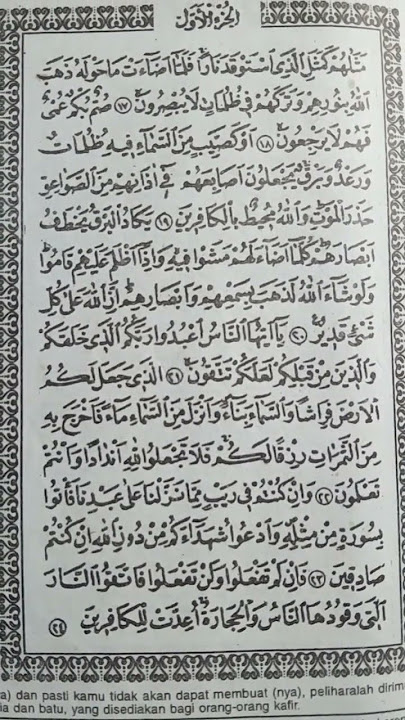 الجزء الأول
مَثَلُهُمْ كَمَثَلِ الَّذِي اسْتَوْقَدَ نَارًا فَلَمَّا أَضَاءَتْ مَا حَوْلَهُ ذَهَبَ
اللَّهُ بِنُورِهِمْ وَتَرَكَهُمْ فِي ظُلُمَاتٍ لَا يُبْصِرُونَ ١٧ صُمٌّ بُكْمٌ عُمْيٌ
فَهُمْ لَا يَرْجِعُونَ ١٨ أَوْ كَصَيِّبٍ مِنَ السَّمَاءِ فِيهِ ظُلُمَاتٌ
وَرَعْدٌ وَبَرْقٌ يَجْعَلُونَ أَصَابِعَهُمْ فِي آذَانِهِمْ مِنَ الصَّوَاعِقِ
حَذَرَ الْمَوْتِ وَاللَّهُ مُحِيطٌ بِالْكَافِرِينَ ١٩ يَكَادُ الْبَرْقُ يَخْطَفُ
أَبْصَارَهُمْ كُلَّمَا أَضَاءَ لَهُمْ مَشَوْا فِيهِ وَإِذَا أَظْلَمَ عَلَيْهِمْ قَامُوا
وَلَوْ شَاءَ اللَّهُ لَذَهَبَ بِسَمْعِهِمْ وَأَبْصَارِهِمْ إِنَّ اللَّهَ عَلَى كُلِّ
شَيْءٍ قَدِيرٌ ٢٠ يَا أَيُّهَا النَّاسُ اعْبُدُوا رَبَّكُمُ الَّذِي خَلَقَكُمْ
وَالَّذِينَ مِنْ قَبْلِكُمْ لَعَلَّكُمْ تَتَّقُونَ ٢١ الَّذِي جَعَلَ لَكُمُ
الْأَرْضَ فِرَاشًا وَالسَّمَاءَ بِنَاءً وَأَنْزَلَ مِنَ السَّمَاءِ مَاءً فَأَخْرَجَ بِهِ
مِنَ الثَّمَرَاتِ رِزْقًا لَكُمْ فَلَا تَجْعَلُوا لِلَّهِ أَنْدَادًا وَأَنْتُمْ
تَعْلَمُونَ ٢٢ وَإِنْ كُنْتُمْ فِي رَيْبٍ مِمَّا نَزَّلْنَا عَلَى عَبْدِنَا فَأْتُوا
بِسُورَةٍ مِنْ مِثْلِهِ وَادْعُوا شُهَدَاءَكُمْ مِنْ دُونِ اللَّهِ إِنْ كُنْتُمْ
صَادِقِينَ ٢٣ فَإِنْ لَمْ تَفْعَلُوا وَلَنْ تَفْعَلُوا فَاتَّقُوا النَّارَ
الَّتِي وَقُودُهَا النَّاسُ وَالْحِجَارَةُ أُعِدَّتْ لِلْكَافِرِينَ ٢٤
a) dan pasti kamu tidak akan dapat membuat (nya), peliharalah dirim
ia dan batu, yang disediakan bagi orang-orang kafir.